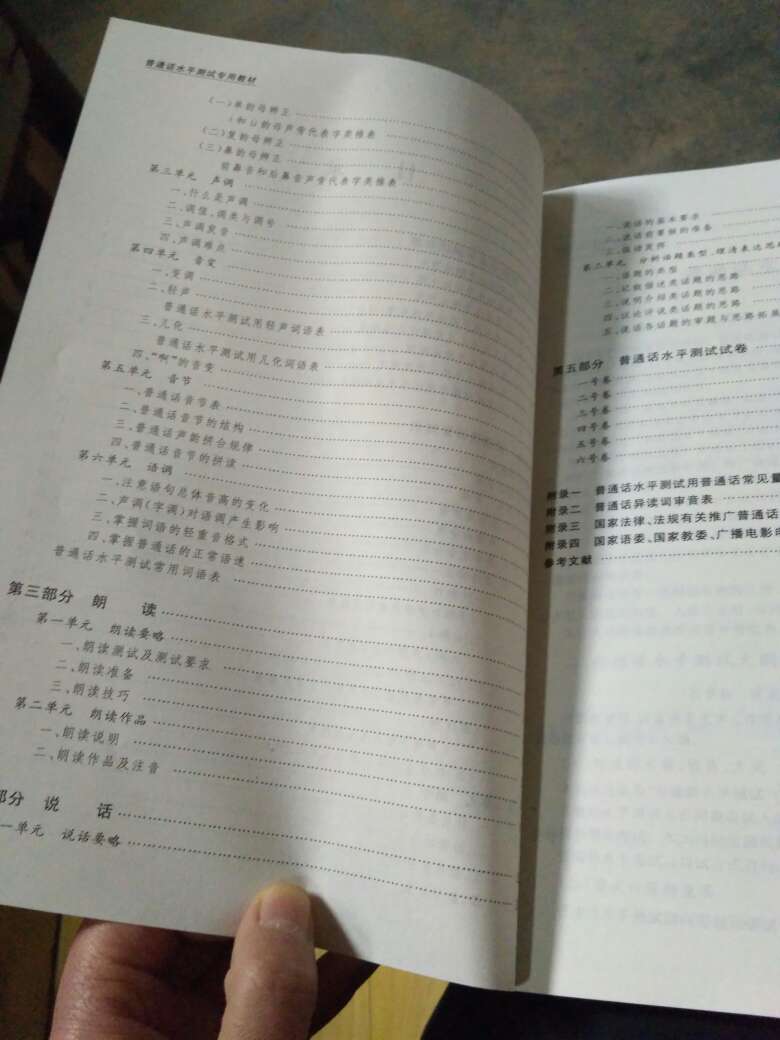 普通话水平测试专用教材
(一)单韵母辨正
i和ü韵母声旁代表字类推表
(二)复韵母辨正
(三)鼻韵母辨正
前鼻音和后鼻音声旁代表字类推表
第三单元 声调
一、什么是声调
二、调值、调类与调号
三、声调发音
四、声调难点
第四单元 音变
一、变调
二、轻声
普通话水平测试用轻声词语表
三、儿化
普通话水平测试用儿化词语表
四、“啊”的音变
第五单元 音节
一、普通话音节表
二、普通话音节的结构
三、普通话声韵拼合规律
四、普通话音节的拼读
第六单元 语调
一、注意语句总体音高的变化
二、声调(字调)对语调产生影响
三、掌握词语的轻重音格式
四、掌握普通话的正常语速
普通话水平测试常用词语表
第三部分 朗 读
第一单元 朗读要略
一、朗读测试及测试要求
二、朗读准备
三、朗读技巧
第二单元 朗读作品
一、朗读说明
二、朗读作品及注音
部分 说 话
一单元 说话要略
一、说话的基本要求
二、说话前要做的准备
第二单元 分析话题类型,理清表达思
一、话题的类型
二、记叙描述类话题的思路
三、说明介绍类话题的思路
四、议论评说类话题的思路
五、说话各话题的审题与思路拓展
第五部分 普通话水平测试试卷
一号卷
二号卷
三号卷
四号卷
五号卷
六号卷
附录一 普通话水平测试用普通话常见量
附录二 普通话异读词审音表
附录三 国家法律、法规有关推广普通话
附录四 国家语委、国家教委、广播电影
参考文献